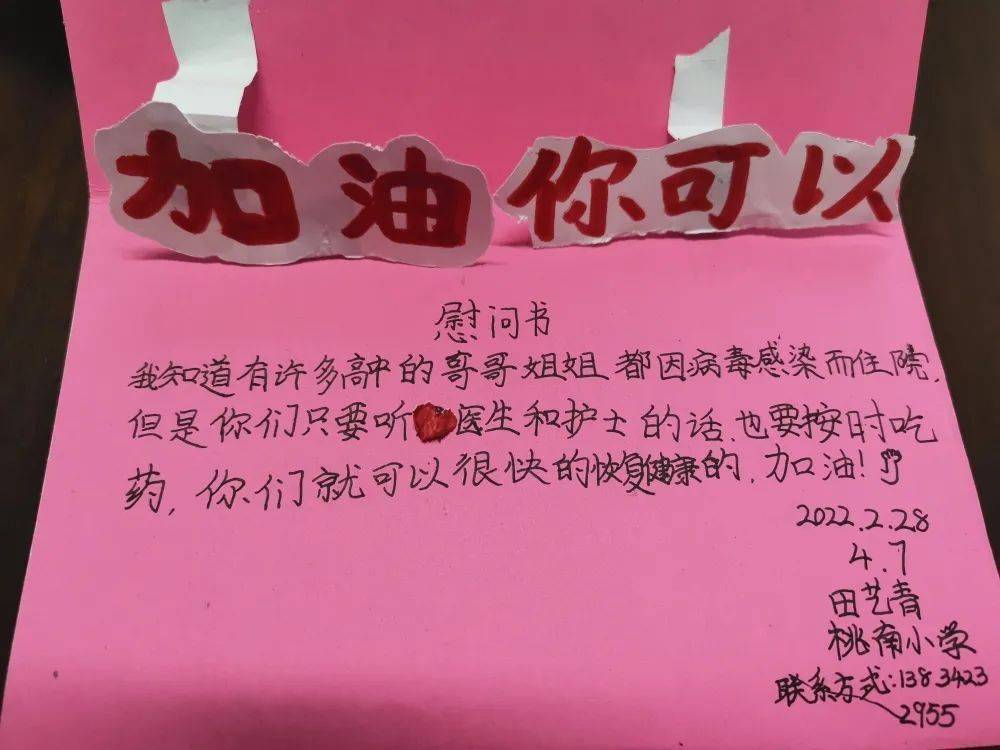 加油你可以
慰问书
我知道有许多高中的哥哥姐姐都因病毒感染而住院,
但是你们只要听医生和护士的话,也要按时吃
药,你们就可以很快的恢复健康的,加油!
2022.2.28
4.7
田艺青
桃南小学
联系方式:1383423
2955